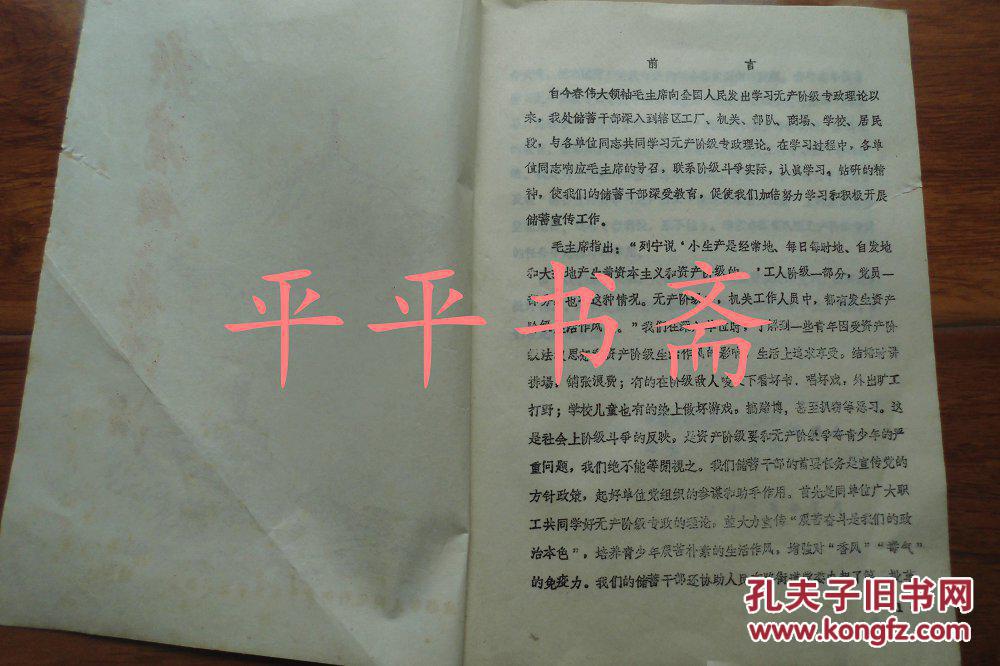 前 言
自今春伟大领袖毛主席向全国人民发出学习无产阶级专政理论以
来，我处储蓄干部深入到辖区工厂、机关、部队、商场、学校、居民
段，与各单位同志共同学习无产阶级专政理论。在学习过程中，各单
位同志响应毛主席的号召，联系阶级斗争实际，认真学习。钻研的精
神，使我们的储蓄干部深受教育，促使我们加倍努力学习和积极开展
储蓄宣传工作。
毛主席指出：“列宁说‘小生产是经常地、每日每时地、自发地
和大 地产生着资本主义和资产阶级的 ’工人阶级一部分，党员一
部 也 这种情况。无产阶级 ，机关工作人员中，都有发生资产
阶级生活作风 。”我们在深入单位时，了解到一些青年因受资产阶
级法 思想 资产阶级生活作风的影响，生活上追求享受。结婚时讲
排场，铺张浪费；有的在阶级敌人唆 下看坏书、唱坏戏，外出旷工
打野；学校儿童也有的染上做坏游戏。搞赌博，甚至扒窃等恶习。这
是社会上阶级斗争的反映，是资产阶级要和无产阶级争夺青少年的严
重问题，我们绝不能等閒视之。我们储蓄干部的首要任务是宣传党的
方针政策，起好单位党组织的参谋和助手作用。首先是同单位广大职
工共同学好无产阶级专政的理论，并大力宣传“艰苦奋斗是我们的政
治本色”，培养青少年艰苦朴素的生活作风，增强对“香风”“毒气”
的免疫力。我们的储蓄干部还协助人民
1
平平书斋
孔夫子旧书网
www.kongfz.com